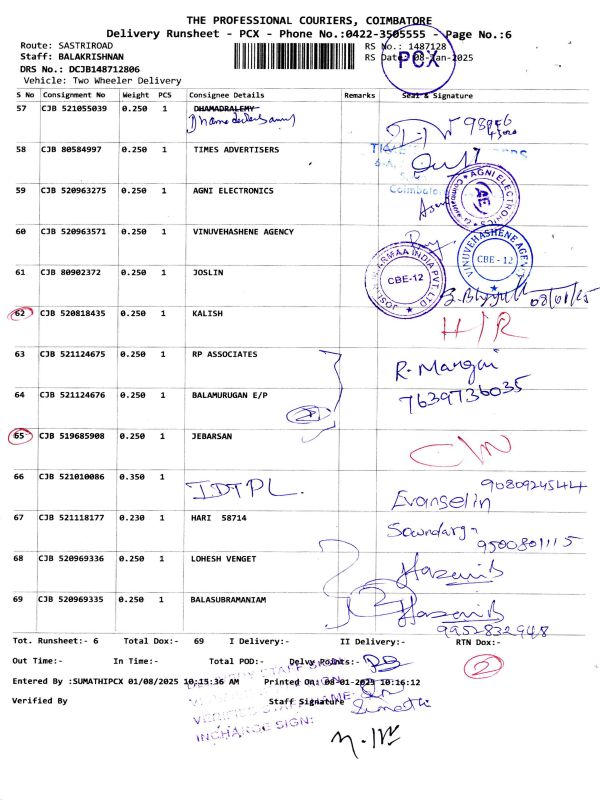 THE PROFESSIONAL COURIERS, COIMBATORE
Delivery Runsheet - PCX - Phone No.:0422-3505555 - Page No.:6
Route: SASTRIROAD RS No.: 1487128
Staff: BALAKRISHNAN RS Date: 08-Jan-2025
PCX
DRS No.: DCJB148712806
Vehicle: Two Wheeler Delivery
S No Consignment No Weight PCS Consignee Details Remarks Seal & Signature
57 CJB 521055039 0.250 1 DHAMADRALEMY
58 CJB 80584997 0.250 1 TIMES ADVERTISERS
Coimbato
59 CJB 520963275 0.250 1 AGNI ELECTRONICS
AGNI ELECTRONICS
AE
60 CJB 520963571 0.250 1 VINUVEHASHENE AGENCY
VINUVEHASHENE AGENCY
CBE-12
61 CJB 80902372 0.250 1 JOSLIN
CBE-12
INDIA PVT. LTD
08/01/25
62 CJB 520818435 0.250 1 KALISH
H/R
63 CJB 521124675 0.250 1 RP ASSOCIATES
R. Mangai
64 CJB 521124676 0.250 1 BALAMURUGAN E/P
7639736035
65 CJB 519685908 0.250 1 JEBARSAN
66 CJB 521010086 0.350 1 IDTPL.
9080924544
Evanselin
67 CJB 521118177 0.230 1 HARI 58714
9500801115
68 CJB 520969336 0.250 1 LOHESH VENGET
69 CJB 520969335 0.250 1 BALASUBRAMANIAM
9952832948
Tot. Runsheet:- 6 Total Dox:- 69 I Delivery:- II Delivery:- RTN Dox:-
2
Out Time:- In Time:- Total POD:- Delvy Points:-
Entered By :SUMATHIPCX 01/08/2025 10:15:36 AM Printed On: 08-01-2025 10:16:12
Verified By Staff Signature
Sumathi
INCHARGE SIGN: